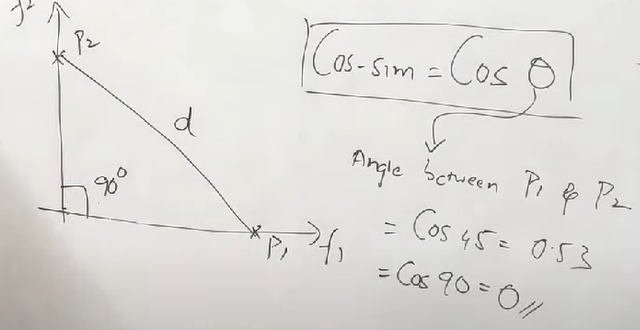 f2
P2
d
90°
P1 f1
Cos-sim = Cos θ
Angle between P1 & P2
= Cos 45 = 0.53
= Cos 90 = 0